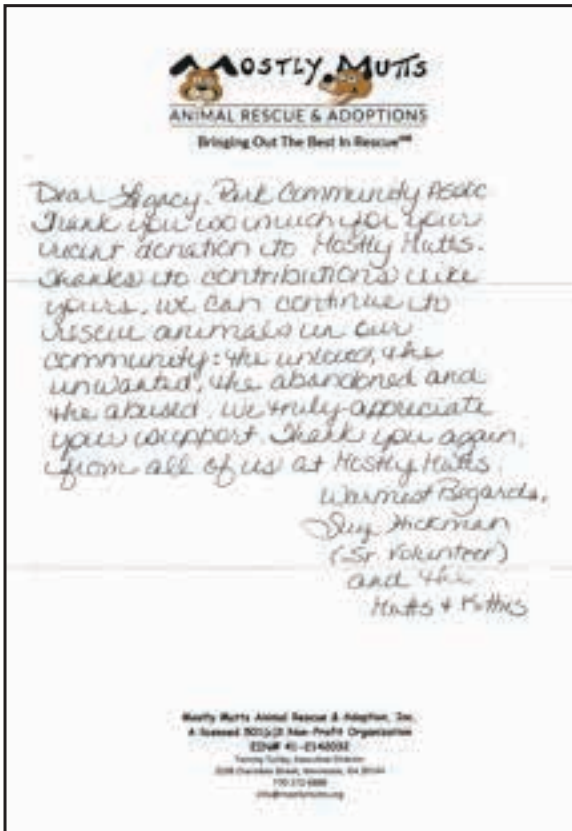 MOSTLY MUTTS
ANIMAL RESCUE & ADOPTIONS
Bringing Out The Best In Rescue
Dear Legacy Park Community Assoc
Thank you so much for your
recent donation to Mostly Mutts.
Thanks to contributions like
yours, we can continue to
rescue animals in our
community: the unloved, the
unwanted, the abandoned and
the abused. We truly appreciate
your support. Thank you again,
from all of us at Mostly Mutts.
Warmest Regards,
Hickman
(Sr Volunteer)
and the
Mutts + Kitties
Mostly Mutts Animal Rescue & Adoption, Inc.
A licensed 501(c)3 Non-Profit Organization
EIN# 41-2142032
Executive Director
info@mostlymutts.org